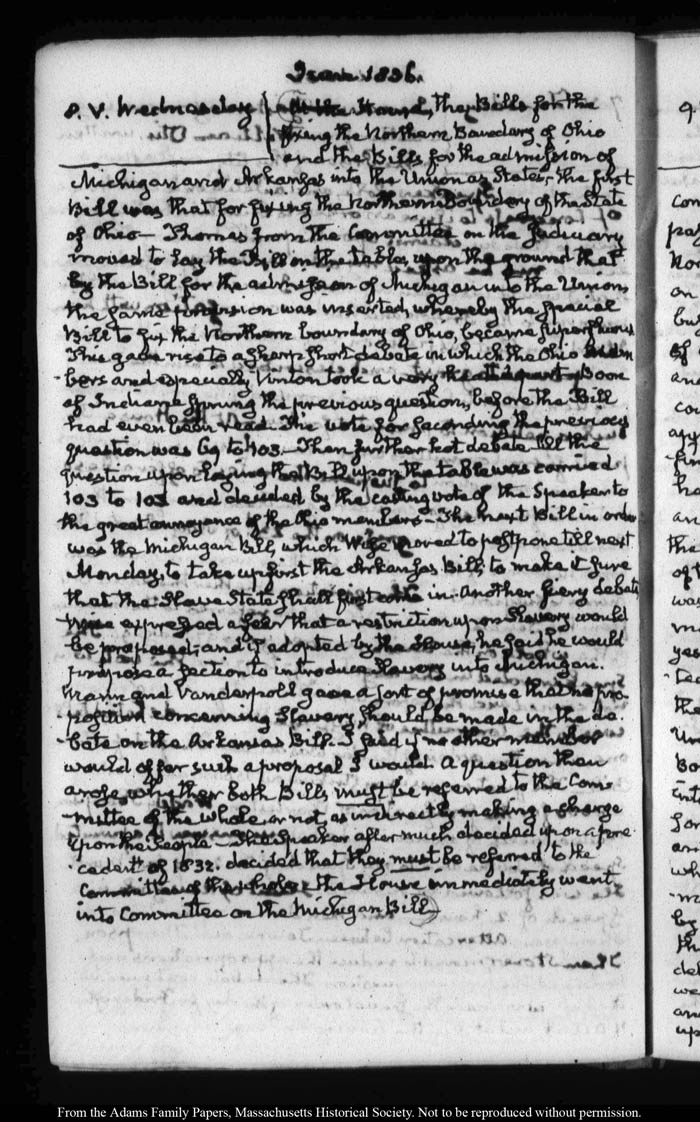 June 1836.
8. V. Wednesday } At the House, the Bills for the
fixing the Northern Boundary of Ohio
and the Bills for the admission of
Michigan and Arkansas into the Union as States. The first
Bill was that for fixing the Northern Boundary of the State
of Ohio — Thomas from the Committee on the Judiciary
moved to lay the Bill on the table, upon the ground that
by the Bill for the admission of Michigan into the Union,
the same provision was inserted, whereby the special
Bill to fix the Northern boundary of Ohio, became superfluous
This gave rise to a sharp short debate in which the Ohio Mem
bers and especially Vinton took a very part. Boon
of Indiana the previous question, before the Bill
had even been read. The vote for seconding the previous
question was 69 to 103. Then further hot debate till the
question upon laying the Bill upon the table was carried
103 to 103 and decided by the casting vote of the Speaker to
the great annoyance of the Ohio members — The next Bill in order
was the Michigan Bill, which Wise moved to postpone till next
Monday, to take up first the Arkansas Bill, to make it sure
that the Slave State shall first come in. Another fiery debate
Wise expressed a fear that a restriction upon Slavery would
be proposed; and if adopted by the House, he said he would
propose a section to introduce Slavery into Michigan.
Mann and Vanderpoel gave a sort of promise that no pro-
-position concerning Slavery, should be made in the de-
-bate on the Arkansas Bill. I said if no other member
would offer such a proposal I would. A question then
arose, whether both Bills must be referred to the Com-
-mittee of the whole or not, as indirectly making a charge
upon the People — The Speaker after much decided upon a pre-
-cedent of 1832. decided that they must be referred to the
Committee of the whole & the House immediately went
into Committee on the Michigan Bill
9.
From the Adams Family Papers, Massachusetts Historical Society. Not to be reproduced without permission.